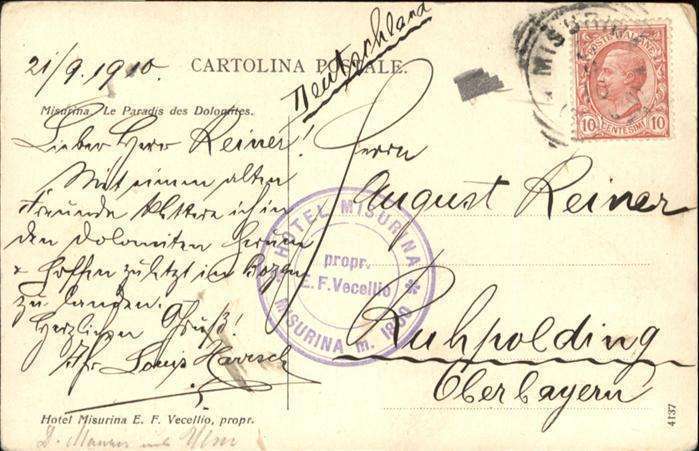 21/9. 1910.
CARTOLINA POSTALE.
Deutschland
Misurina. Le Paradis des Dolomites.
Lieber Herr Reiner!
Mit einem alten
Freunde klettere ich in
den Dolomiten herum
& hoffen zuletzt in Bozen
zu landen.
Herzlichen Gruß!
Ihr Louis
Hotel Misurina E. F. Vecellio, propr.
Ulm
MISURINA
POSTE ITALIANE
10 CENTESIMI 10
Herrn
August Reiner
HOTEL MISURINA
propr.
E. F. Vecellio
MISURINA m. 1800
Ruhpolding
Oberbayern
4137